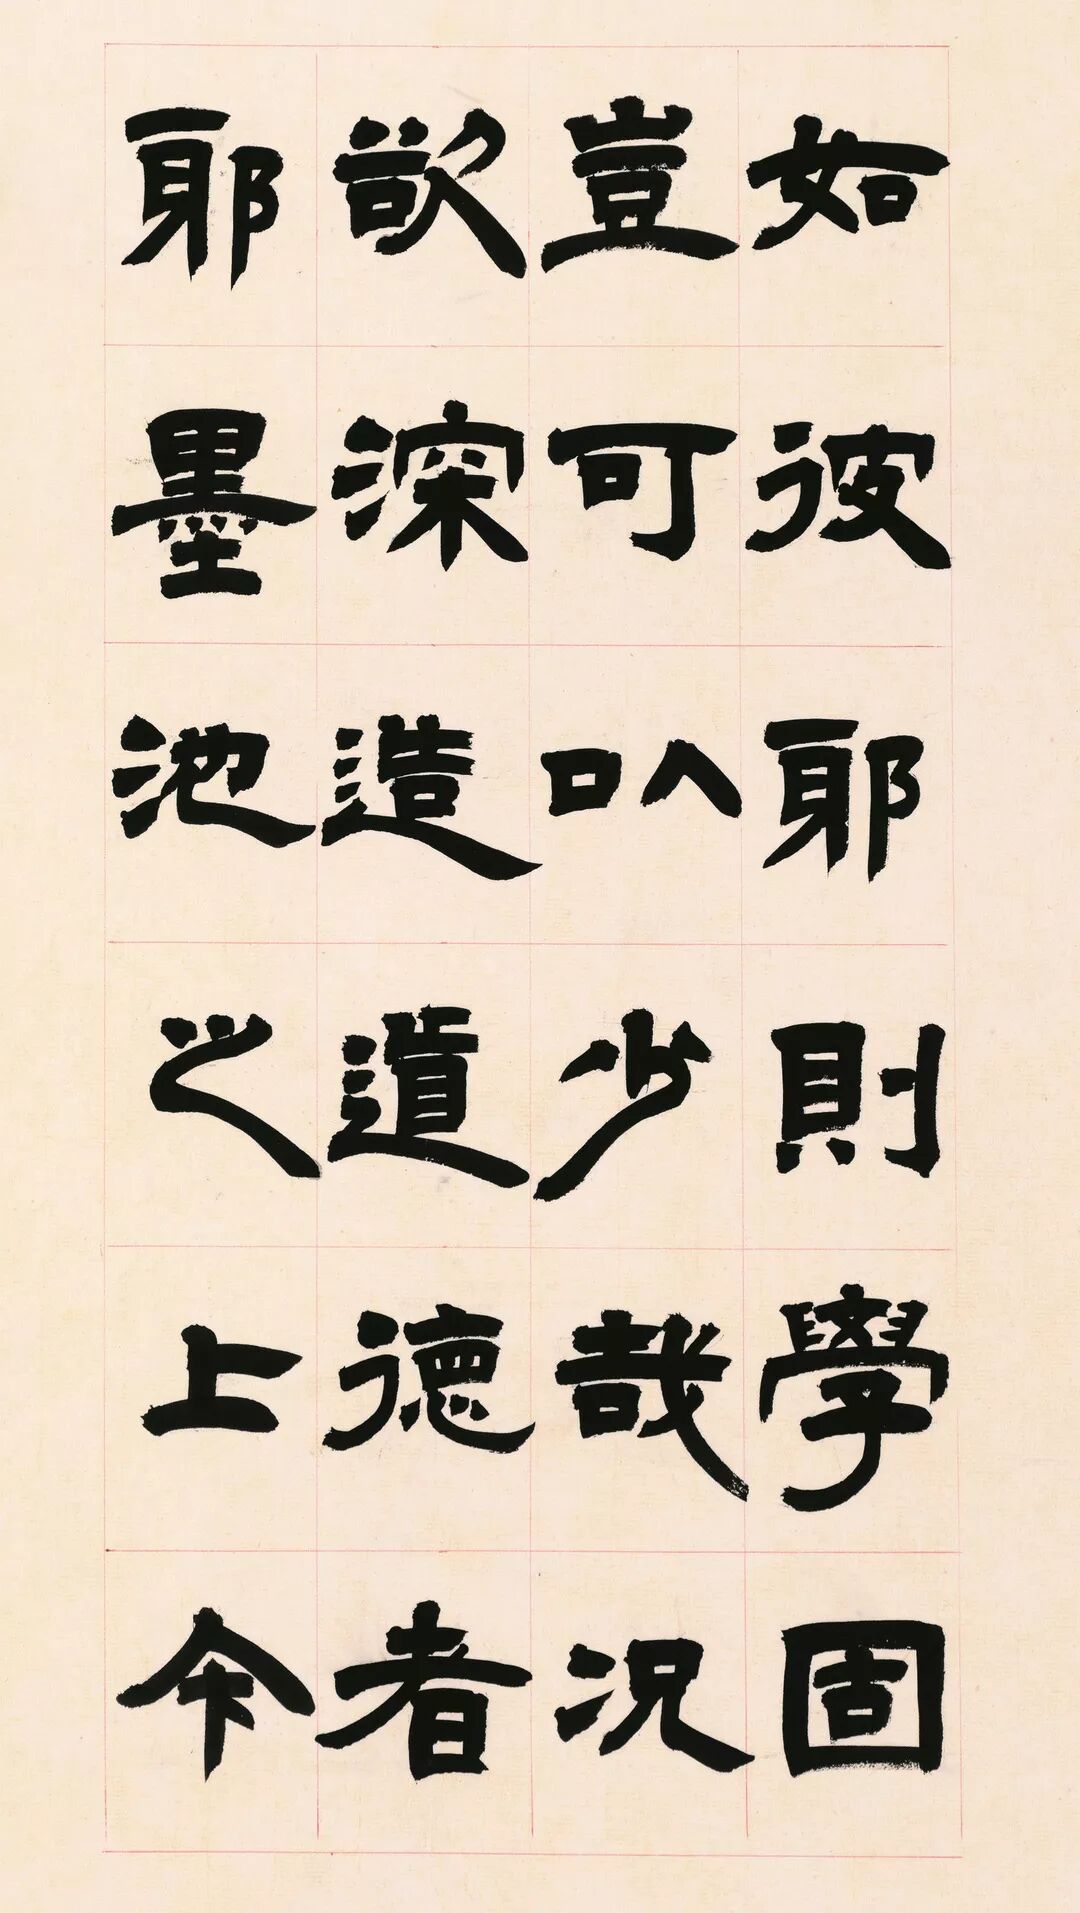 如彼耶則學固
豈可㕥少哉況
欲深造道德者
耶墨池之上今